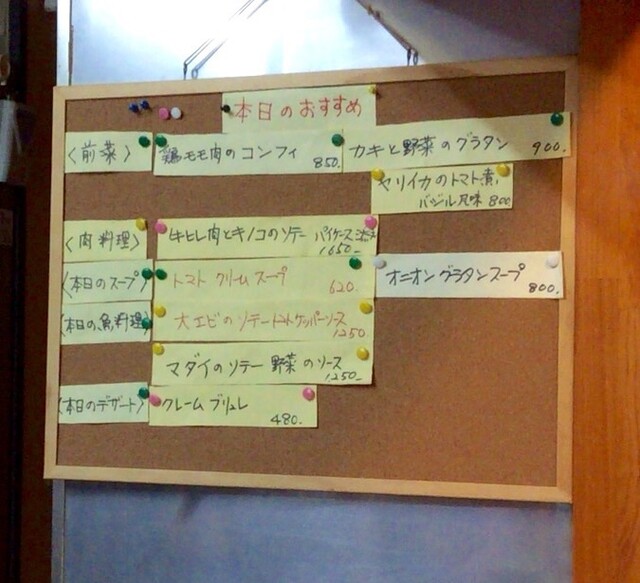 本日のおすすめ
〈前菜〉
鶏モモ肉のコンフィ
850.
カキと野菜のグラタン
900.
ヤリイカのトマト漬
バジル風味 800
〈肉料理〉
牛ヒレ肉とキノコのソテー パイケース添え
1650-
〈本日のスープ〉
トマト クリームスープ
620.
オニオングラタンスープ
800.
〈本日の魚料理〉
大エビのソテー トマトケッパーソース
1250
マダイのソテー 野菜のソース
1250-
〈本日のデザート〉
クレームブリュレ
480.